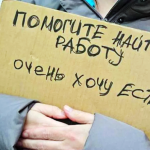 ПОМОГИТЕ НАЙТ
РАБОТУ
ОЧЕНЬ ХОЧУ ЕСТ